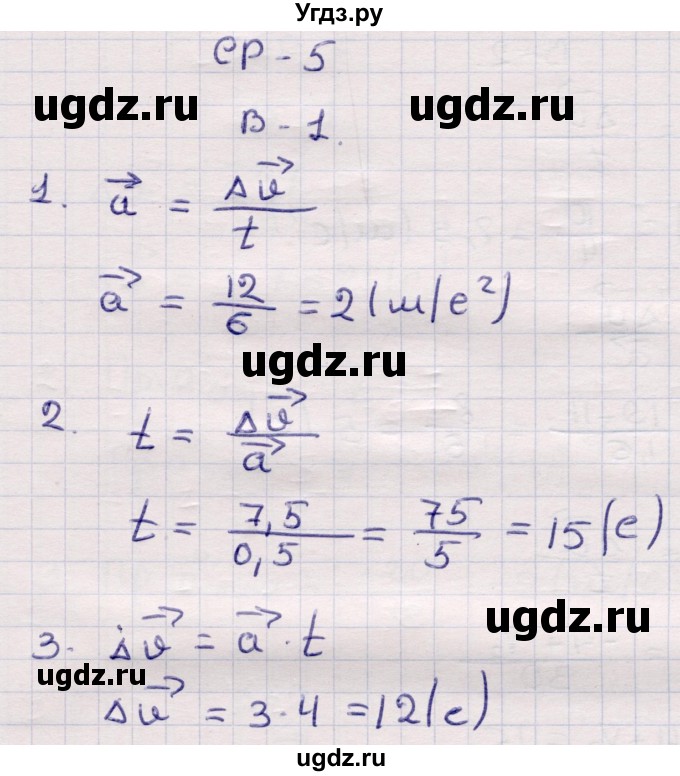 Угдз.ру
СР - 5
ugdz.ru ugdz.ru
В - 1.
1. a⃗ = Δv⃗ / t
a⃗ = 12/6 = 2 (м/с²)
ugdz.ru
2. t = Δv⃗ / a⃗
t = 7,5/0,5 = 75/5 = 15 (с)
ugdz.ru
3. Δv⃗ = a⃗ · t
ugdz.ru
Δv⃗ = 3·4 = 12 (с)
ugdz.ru